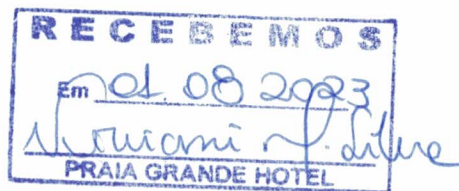 RECEBEMOS
Em 01.08 2023
Silva
PRAIA GRANDE HOTEL